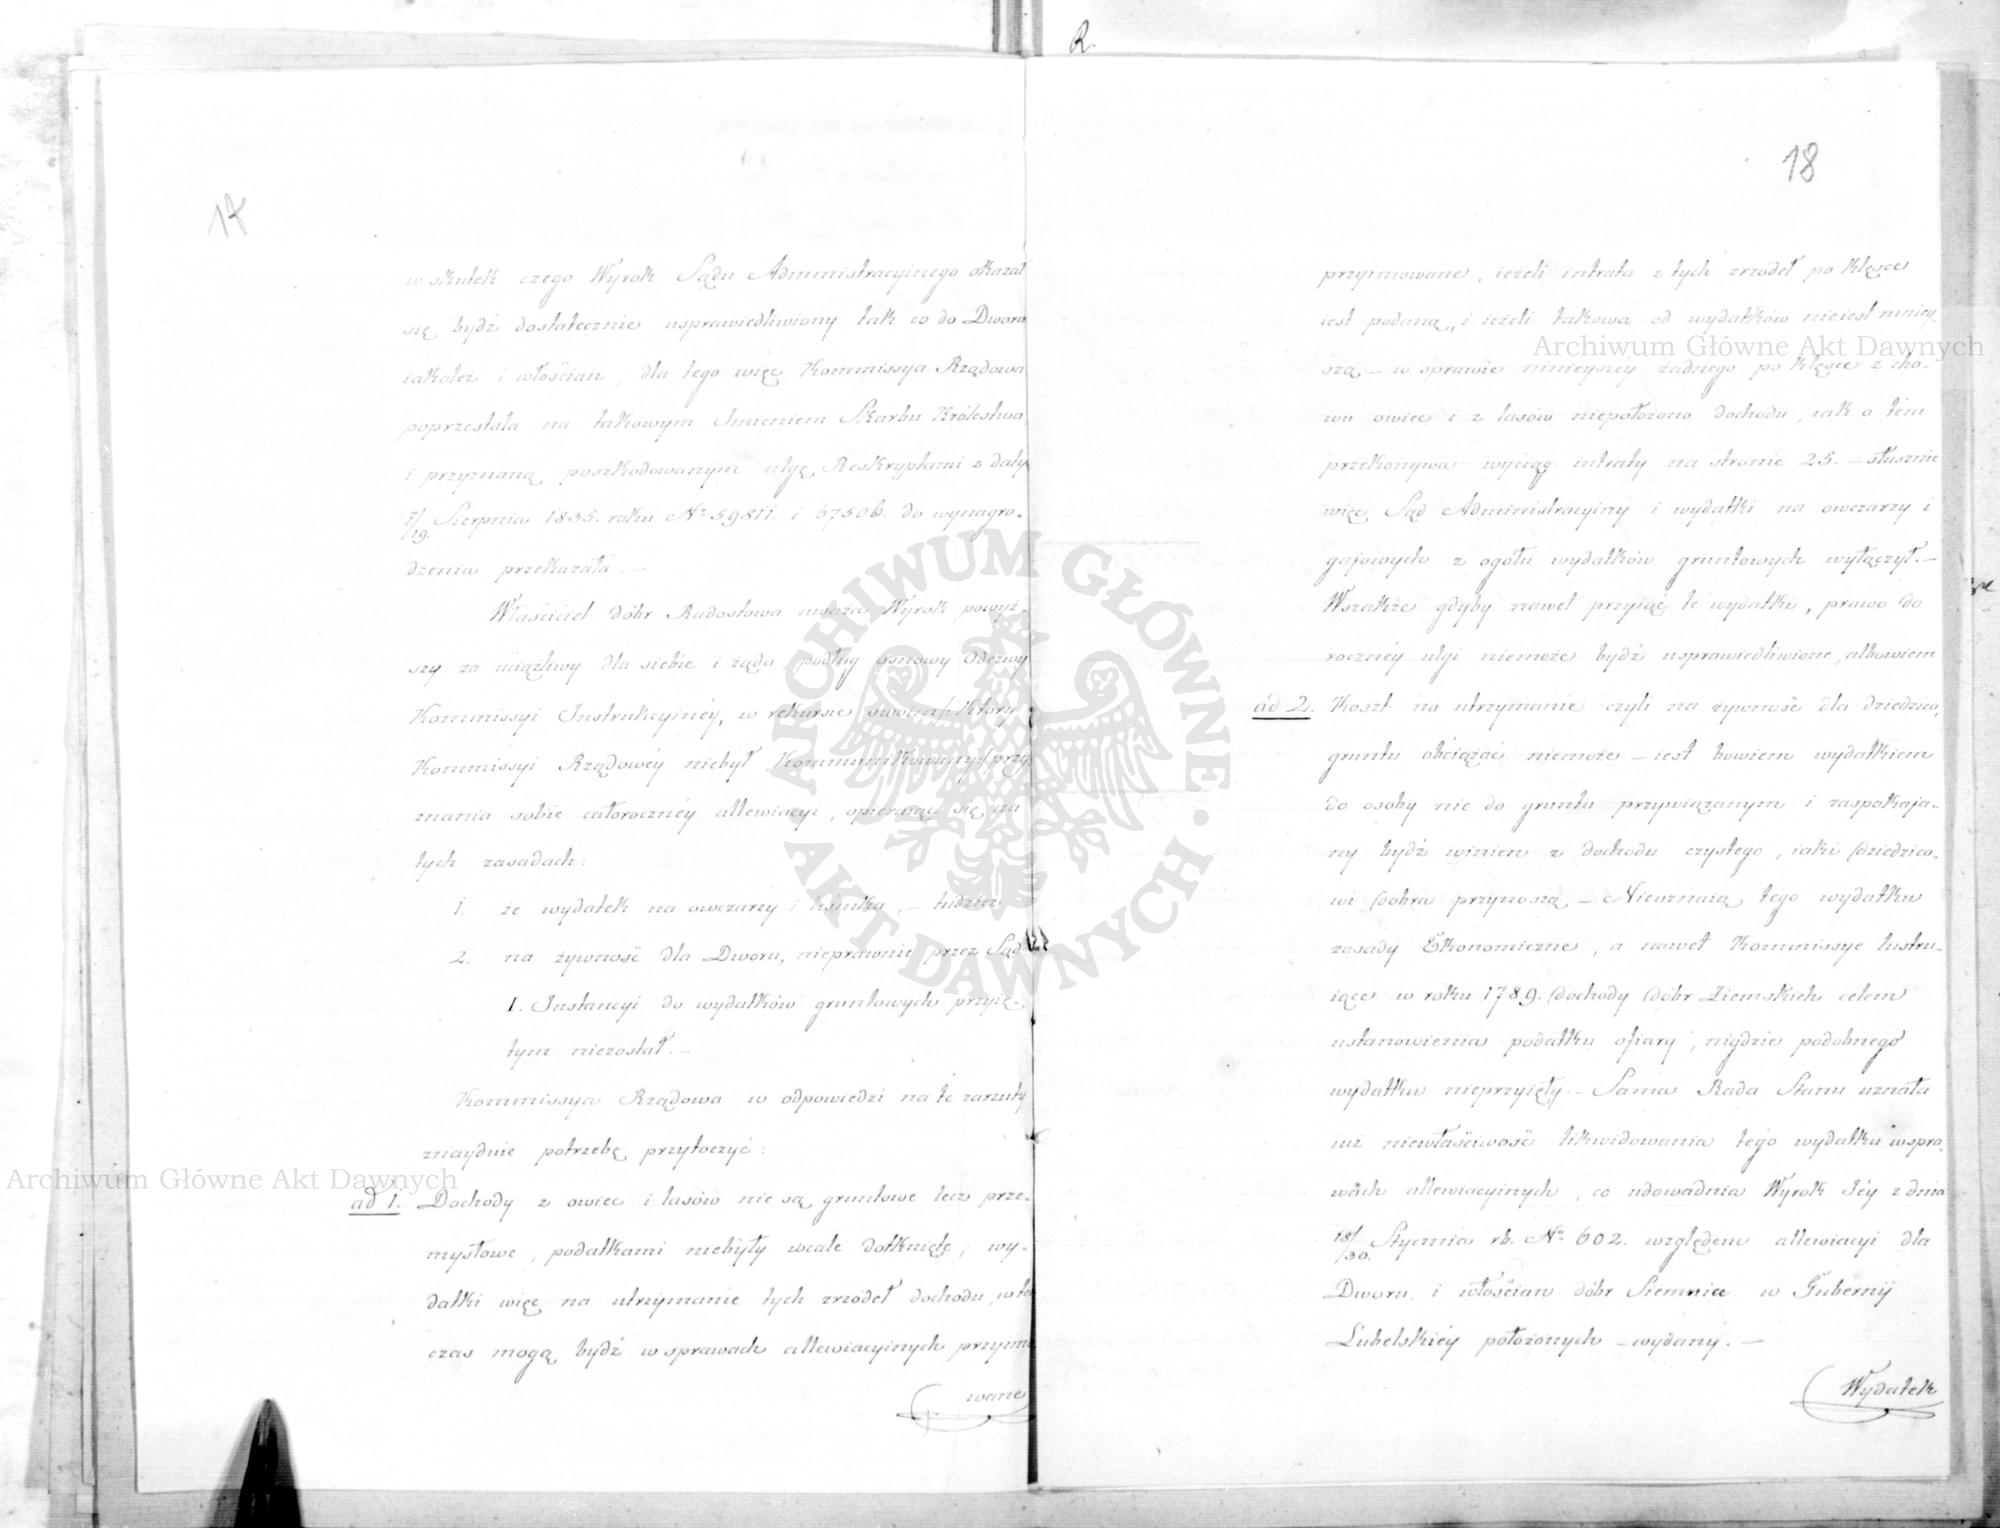 R.
17
w skutek czego Wyrok Sądu Administracyinego okazał
się bydź dostatecznie usprawiedliwiony tak co do Dworu
iakoteż i włościan, dla tego więc Kommissya Rządowa
poprzestała na takowym Imieniem Skarbu Królestwa,
i przyznaną poszkodowanym ulgę Reskryptami z daty
7/19. Sierpnia 1835. roku Nr 59811. i 67506. do wynagro-
dzenia przekazała. —
Właściciel dóbr Radostowa uważa Wyrok powyż-
szy za uciążliwy dla siebie i żąda podług osnowy Odezwy
Kommissyi Instrukcyinéy, w rekursie swoim /: który
Kommissyi Rządowéy niebył Kommunikowany :/ przy-
znania sobie całorocznéy allewiacyi, opierając się na
tych zasadach:
1. że wydatek na owczarzy i leśnika, — tudzież
2. na żywność dla Dworu, nieprawnie przez Sąd
I. Instancyi do wydatków gruntowych przyię-
tym niezostał. —
Kommissya Rządowa w odpowiedzi na te zarzuty
znayduie potrzebę przytoczyć:
ad 1. Dochody z owiec i lasów nie są gruntowe lecz prze-
mysłowe, podatkami niebyły wcale dotknięte; wy-
datki więc na utrzymanie tych zrzódeł dochodu, w ten
czas mogą bydź w sprawach allewiacyinych przyimo
wane
18
przyimowane, ieżeli intrata z tych zrzódeł po klęsce
iest podaną, i ieżeli takowa od wydatków nieiest mniey-
szą — w sprawie ninieyszey żadnego po klęsce z cho-
wu owiec i z lasów niepołożono dochodu, iak o tém
przekonywa wyciąg intraty na stronie 25. — słusznie
więc Sąd Administracyiny i wydatki na owczarzy i
gajowych z ogółu wydatków gruntowych wyłączył. —
Wszakże gdyby nawet przyiąć te wydatki, prawo do
rocznéy ulgi niemoże bydź usprawiedliwione, albowiem
ad 2. Koszt na utrzymanie czyli na żywność dla dziedzica,
gruntu obciążać niemoże — iest bowiem wydatkiem
do osoby nie do gruntu przywiązanym i zaspokaja-
ny bydź winien z dochodu czystego, iaki dziedzico-
wi dobra przynoszą — Nieuznaią tego wydatku
zasady Ekonomiczne, a nawet Kommissye lustru-
iące w roku 1789. dochody dóbr Ziemskich celem
ustanowienia podatku ofiary, nigdzie podobnego
wydatku nieprzyięły. — Sama Rada Stanu uznała
iuż niewłaściwość likwidowania tego wydatku w spra-
wach allewiacyinych, co udowadnia Wyrok Jéy z dnia
18/30. Stycznia rb. Nr 602. względem allewiacyi dla
Dworu i włościan dóbr Siemnice w Gubernij
Lubelskiéy położonych — wydany. —
Wydatek
Archiwum Główne Akt Dawnych
Archiwum Główne Akt Dawnych
ARCHIWUM GŁÓWNE • AKT DAWNYCH •